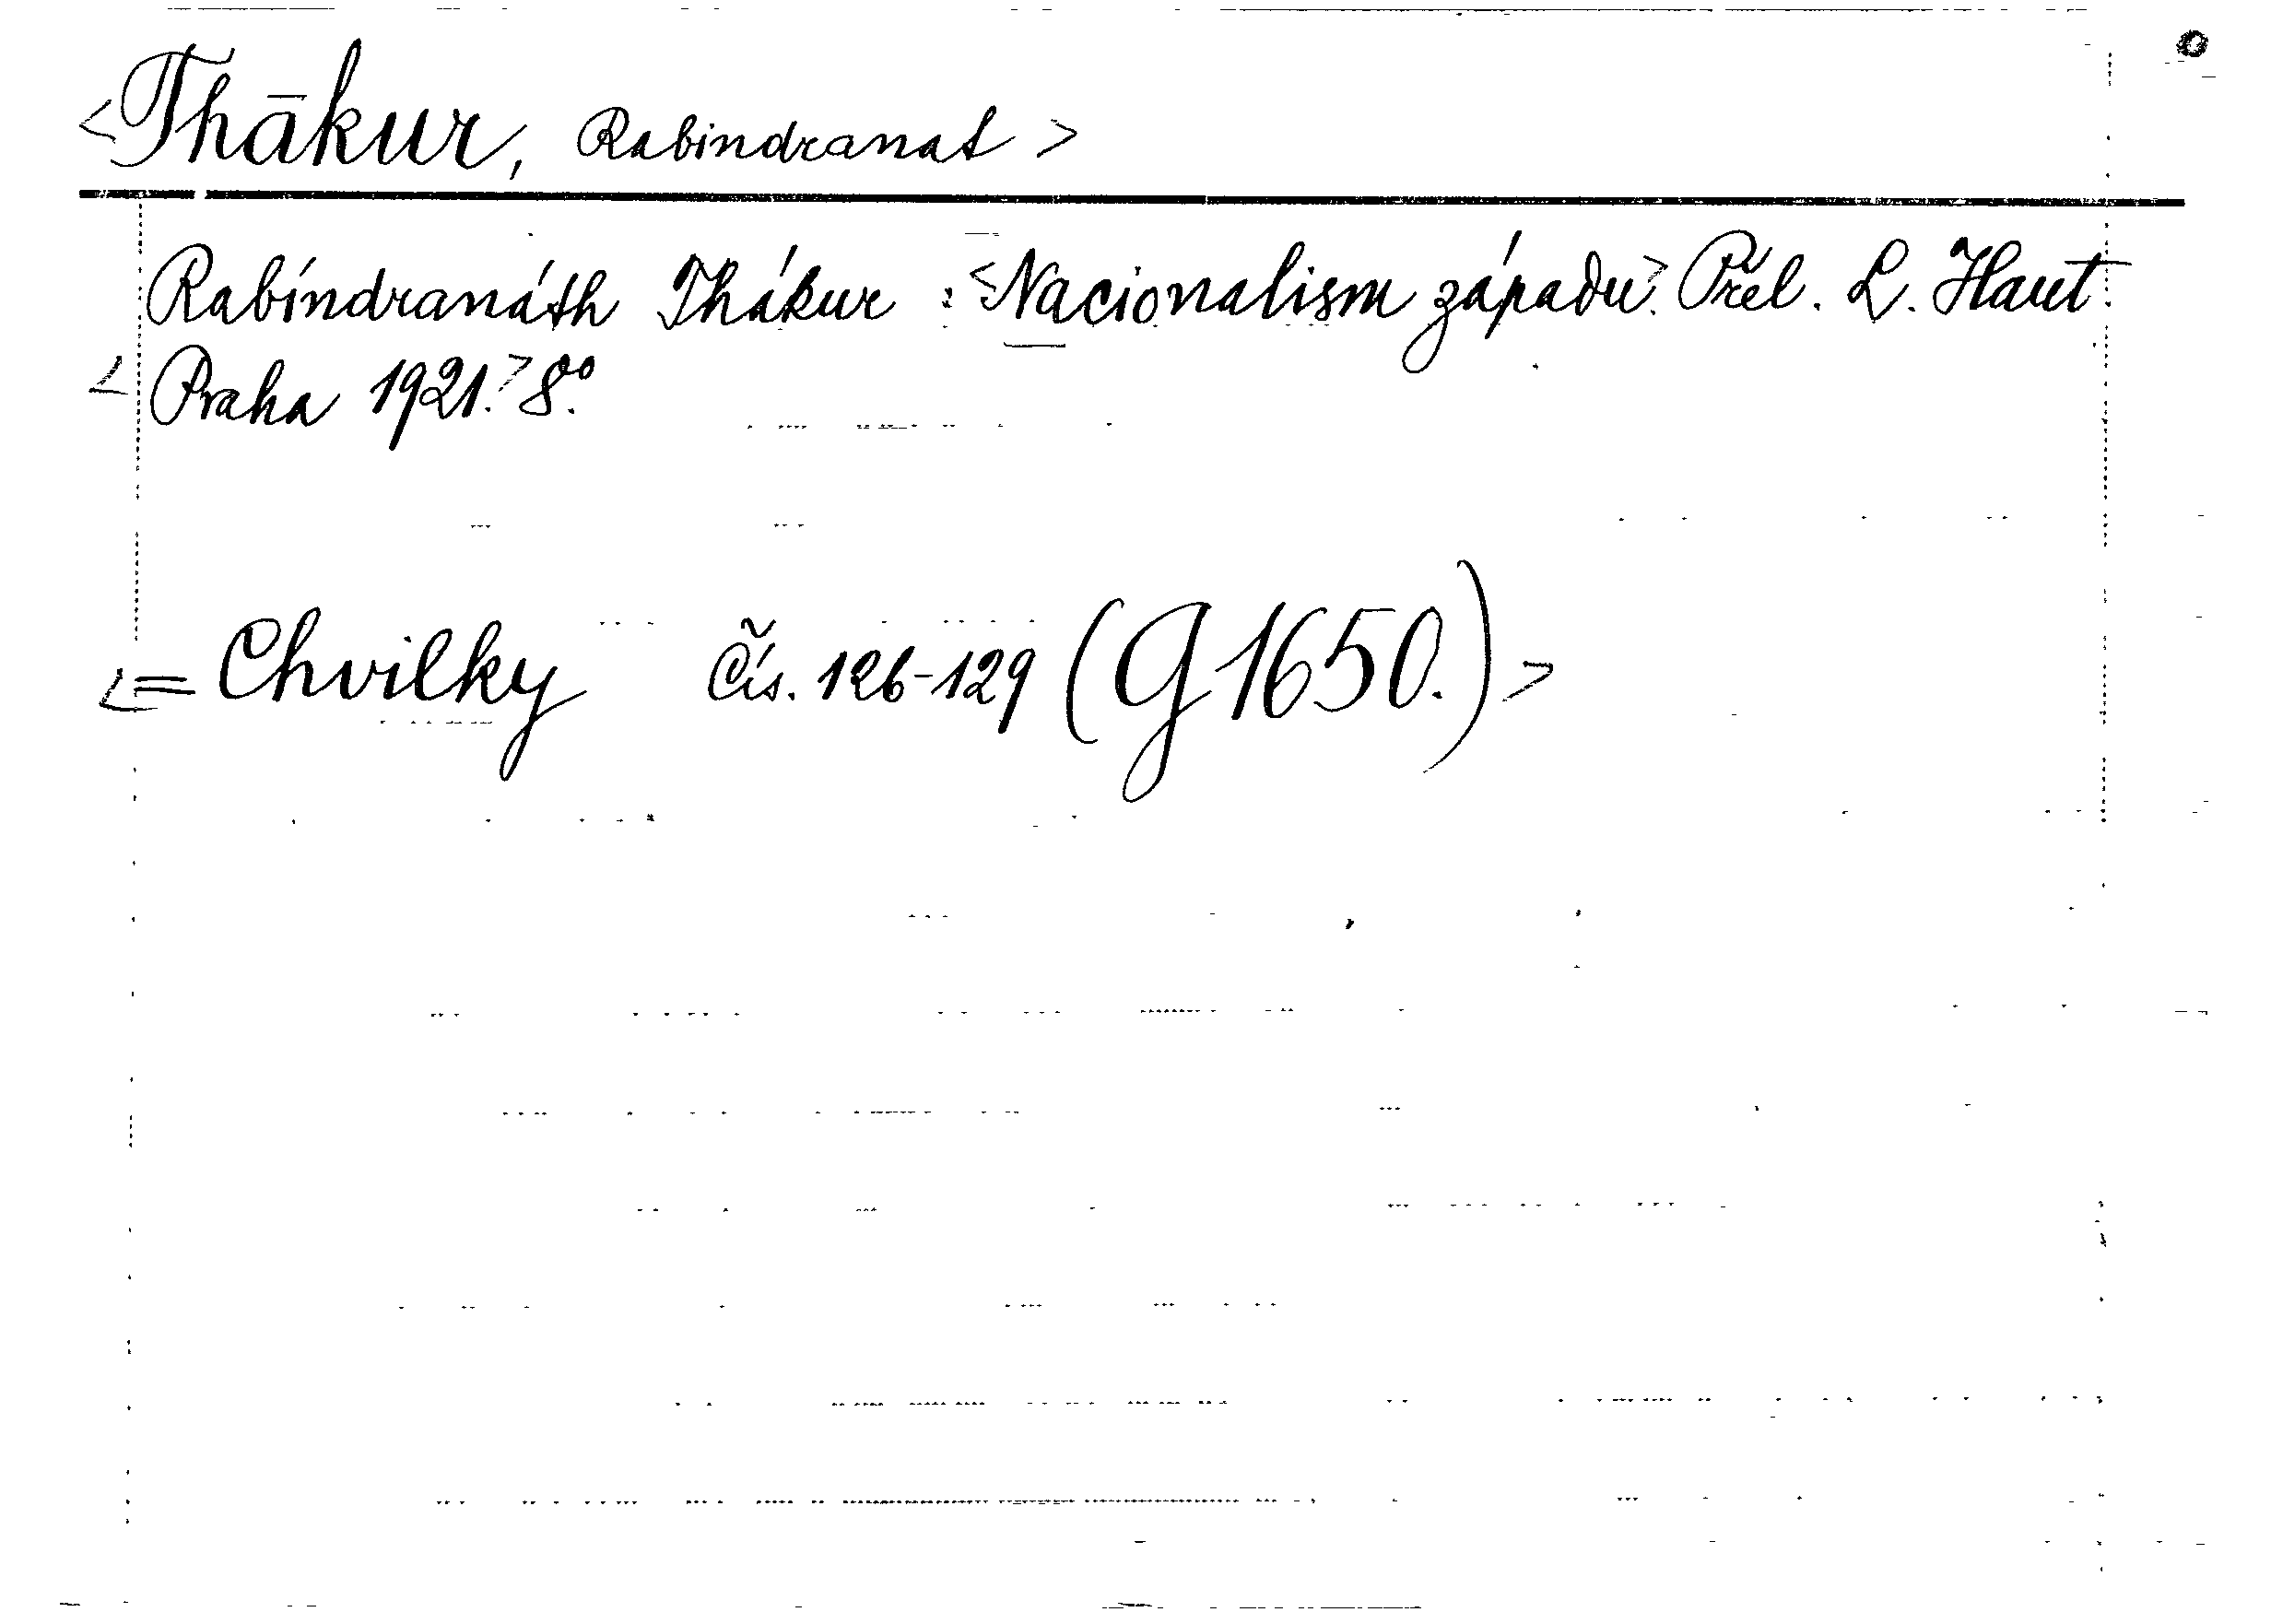 <Thākur, Rabindranat>
Rabíndranáth Thákur : <Nacionalism západu.> Přel. L. Haut.
<Praha 1921.> 8.°
<= Chvilky čís. 126-129 (G 1650.)>